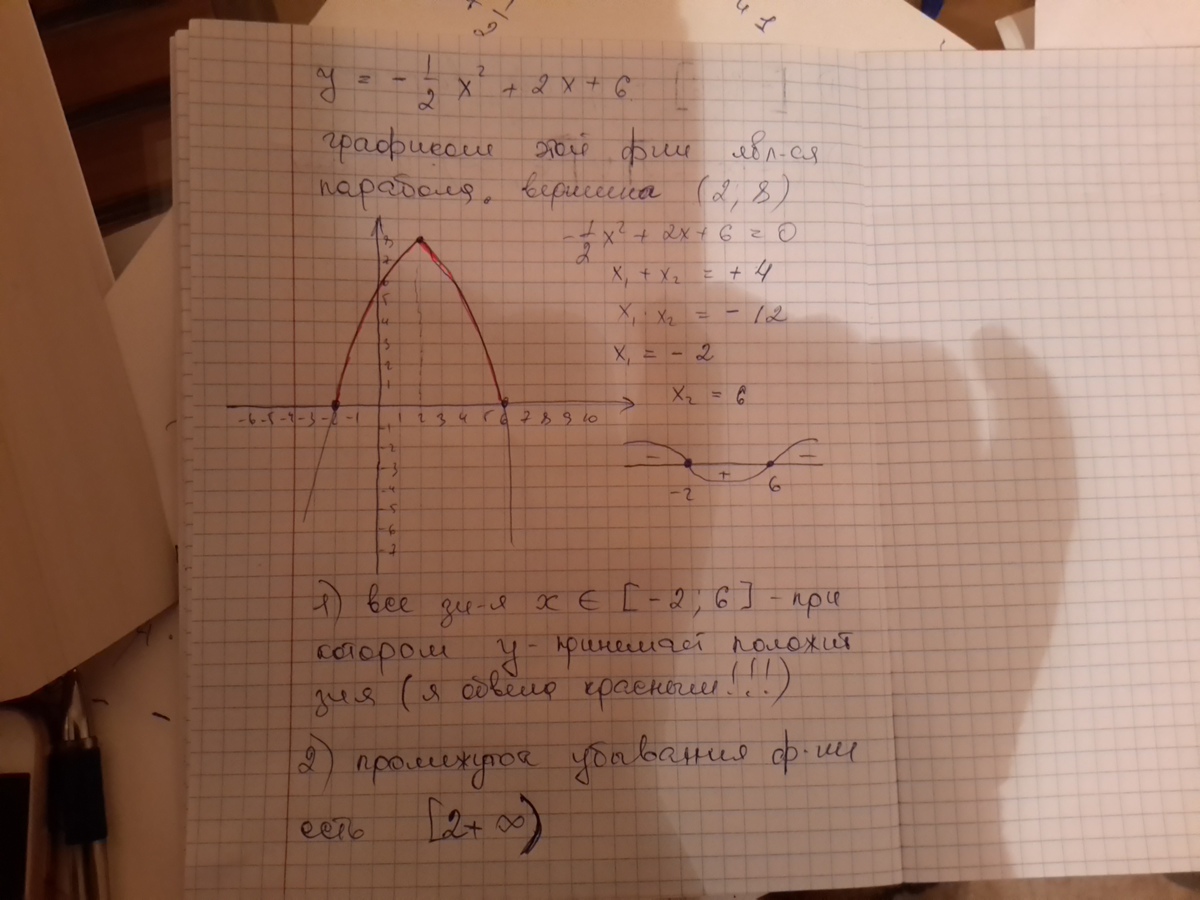 y = - 1/2 x² + 2x + 6
графиком этой фии явл-ся
парабола. вершина (2; 8)
-1/2 x² + 2x + 6 = 0
x₁ + x₂ = + 4
x₁ · x₂ = - 12
x₁ = - 2
x₂ = 6
8
7
6
5
4
3
2
1
-6 -5 -4 -3 -2 -1 1 2 3 4 5 6 7 8 9 10
-1
-2
-3
-4
-5
-6
-7
- + -
-2 6
1) все зн-я x ∈ [-2; 6] - при
котором y - принемает положит
зия (я обвела красным!!!)
2) промежуток убывания ф-ии
есть [2+ ∞)